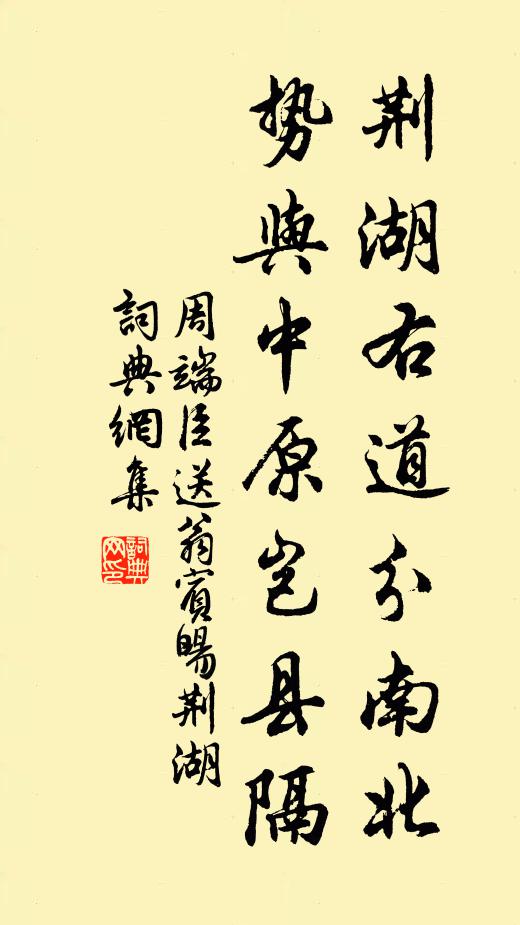 荆湖右道分南北
势與中原岂县隔
周端臣送翁賓暘荆湖
詞典網集
詞典網印